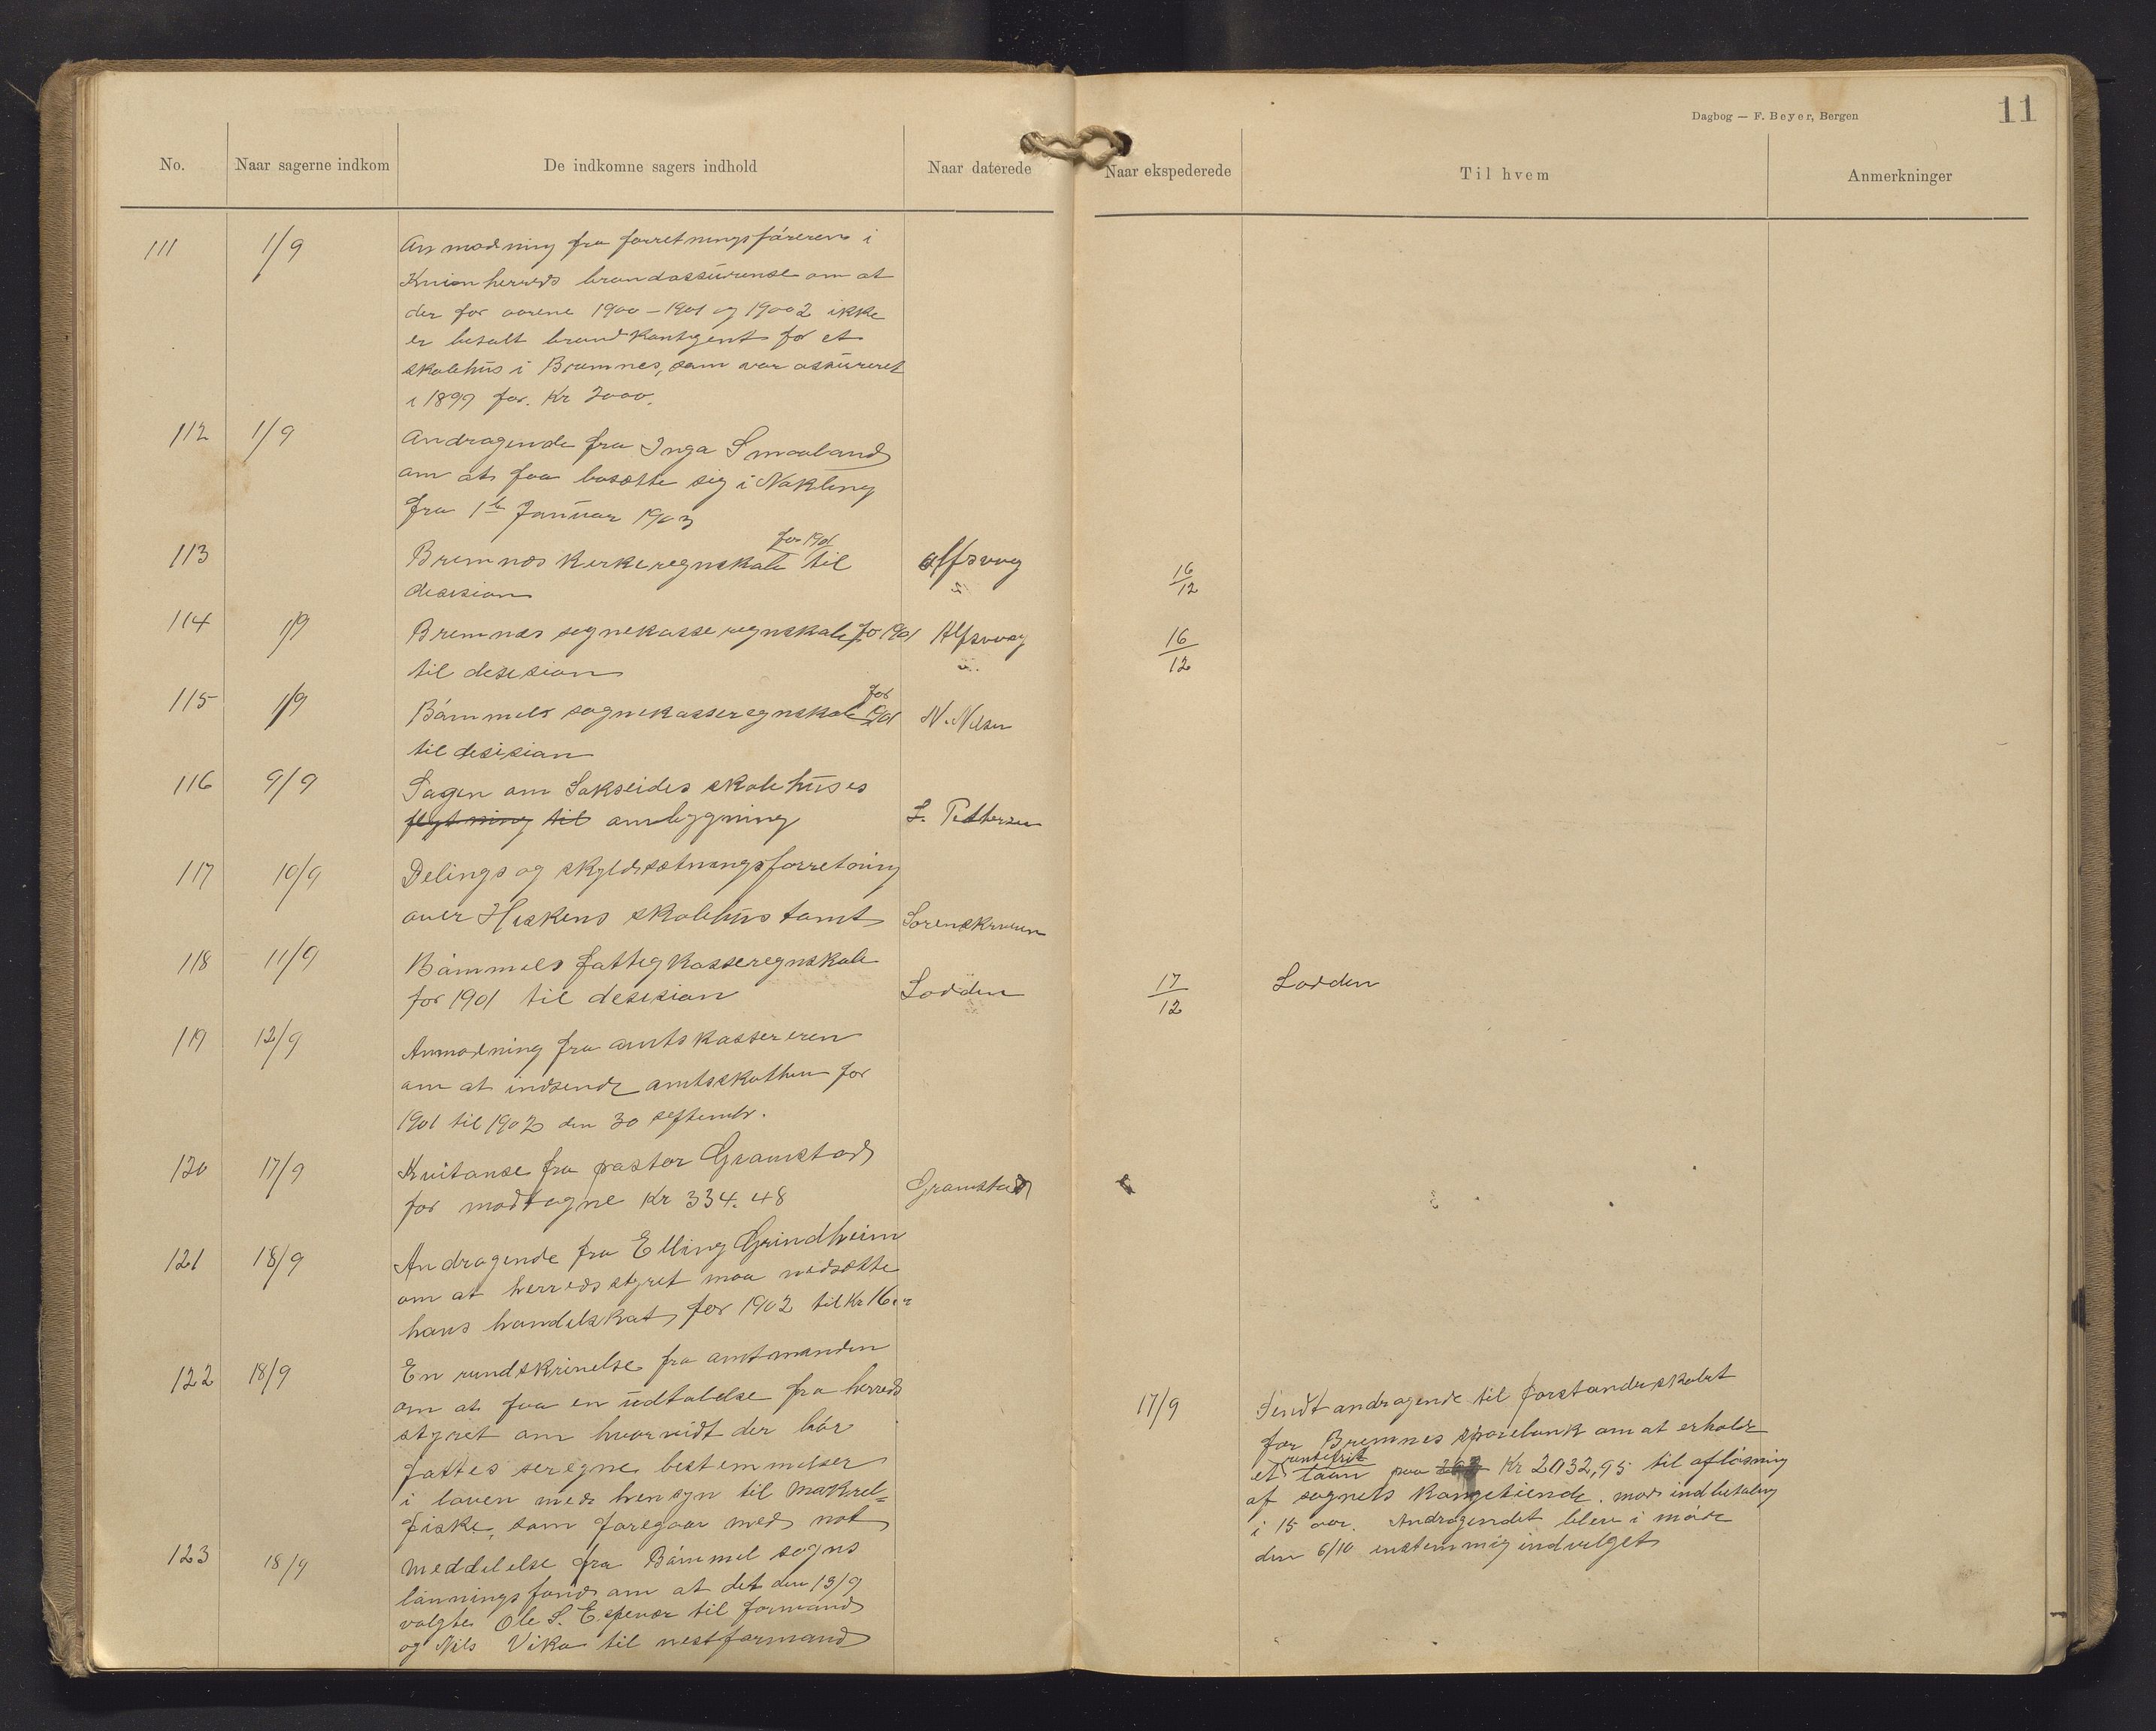 Dagbog — F. Beyer, Bergen
11
No.
Naar sagerne indkom
De indkomne sagers indhold
Naar daterede
Naar ekspederede
Til hvem
Anmerkninger
111 1/9 Anmodning fra forretningsføreren i
herreds brandassüranse om at
der for aarene 1900-1901 og 19002 ikke
er betalt brandkontigent for et
skolehüs i Bremnes, som var assüreret
i 1899 for Kr 2000.
112 1/9 Andragende fra Inga Smaaland
om at faa bosætte sig i Nakling
fra 1ste Janüar 1903
for 1901
113 Bremnes kirkeregnskab til Alfsvog 16/12
desision
114 1/9 Bremnes sognekasseregnskab for 1901 Alfsvog 16/12
til desision
for
115 1/9 Bømmels sognekasseregnskab 1901 N. Nilsen
til desision
116 9/9 Sagen om Sakseides skolehüses
flytning til ombygning L. Pettersen
117 10/9 Delings og skyldsætningsforretning
over Hiskens skolehüstomt Sorenskriveren
118 11/9 Bømmels fattigkasseregnskab
for 1901 til desision Lodden 17/12 Lodden
119 12/9 Anmodning fra amtskassereren
om at indsende amtsskatten for
1901 til 1902 den 30 septembr.
120 17/9 Kvitanse fra pastor Gramstad
for modtagne Kr 334.48 Gramstad
121 18/9 Andragende fra Elling Grindheim
om at herredsstyret maa nedsætte
hans handelskat for 1902 til Kr 16
122 18/9 En rundskrivelse fra amtmanden
om at faa en üdtalelse fra herreds
styret om hvorvidt der bør
fattes seregne bestemmelser
i loven med hensyn til makrel=
fiske, som foregaar med not
17/9 Sendt andragende til forstanderskabet
for Bremnes sparebank om at erholde
rentefrit
et laan paa Kr 2032,95 til afløsning
af sognets kongetiende mod indbetaling
i 15 aar. Andragendet blev i møde
den 6/10 enstemmig indvilget
123 18/9 Meddelelse fra Bømmel sogns
lønningsfond om at det den 13/9
valgte Ole S. Espevær til formand
og Nils Vika til nestformand